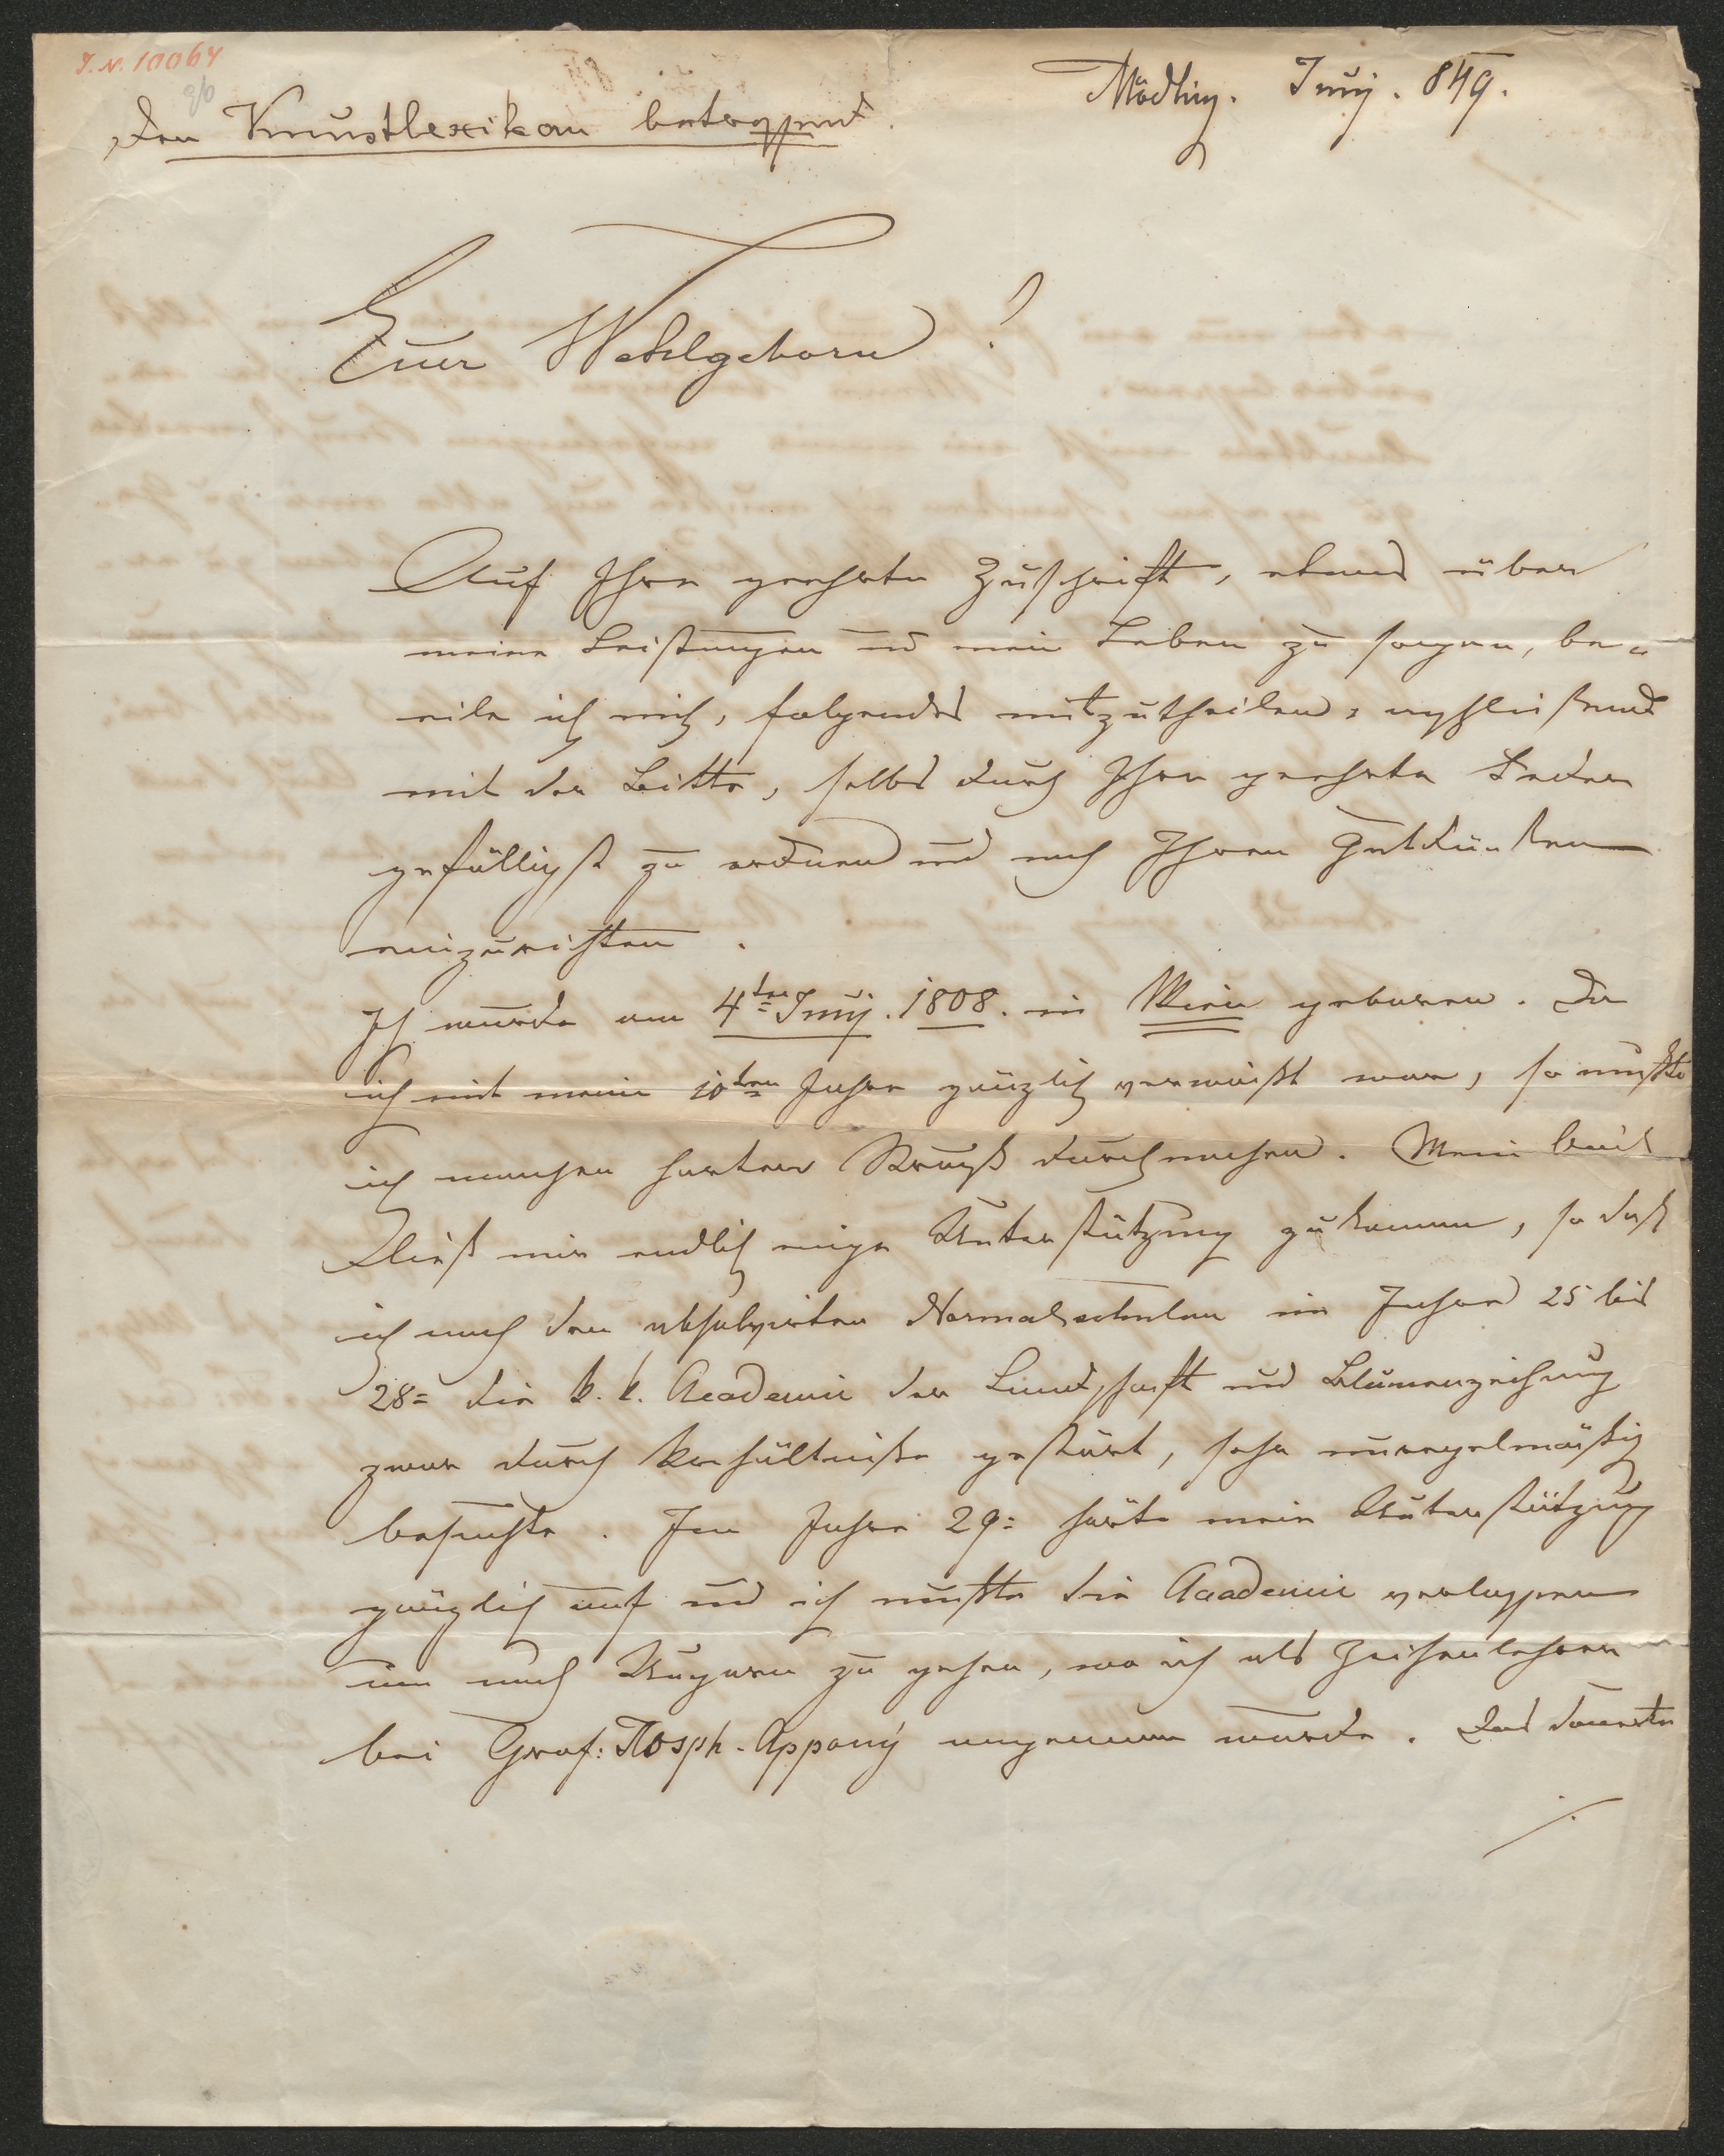 I.N. 10064
Das Kunstlexikon betreffend.
Mödling. Junÿ. 849.
Euer Wohlgeborn!
Auf Ihre geehrte Zuschrift, etwas über
meine Leistungen und mein Leben zu sagen, be-
eile ich mich, folgendes mitzutheilen,
mit der Bitte, selbes durch Ihre geehrte Feder
gefälligst zu ordnen und nach Ihren Gutdünken
einzurichten.
Ich wurde am 4ten Junÿ. 1808. in Wien geboren. Da
ich mit mein 10ten Jahre gänzlich verwaißt war, so mußte
ich manchen harten Kampf durchmachen. Mein
ließ mir endlich einige Unterstützung zukommen, so daß
ich nach den absolvirten Normalschulen im Jahre 25 bis
28= die k. k. Academie der Landschaft und Blumenzeichnung
zwar durch Verhältniße gestört, sehr unregelmäßig
besuchte. Im Jahre 29= hörte meine Unterstützung
gänzlich auf und ich mußte die Academie verlassen
um nach Ungarn zu gehen, wo ich als Zeichenlehrer
bei Graf: Josph. Appony angenommen wurde. Das dauerte
./.